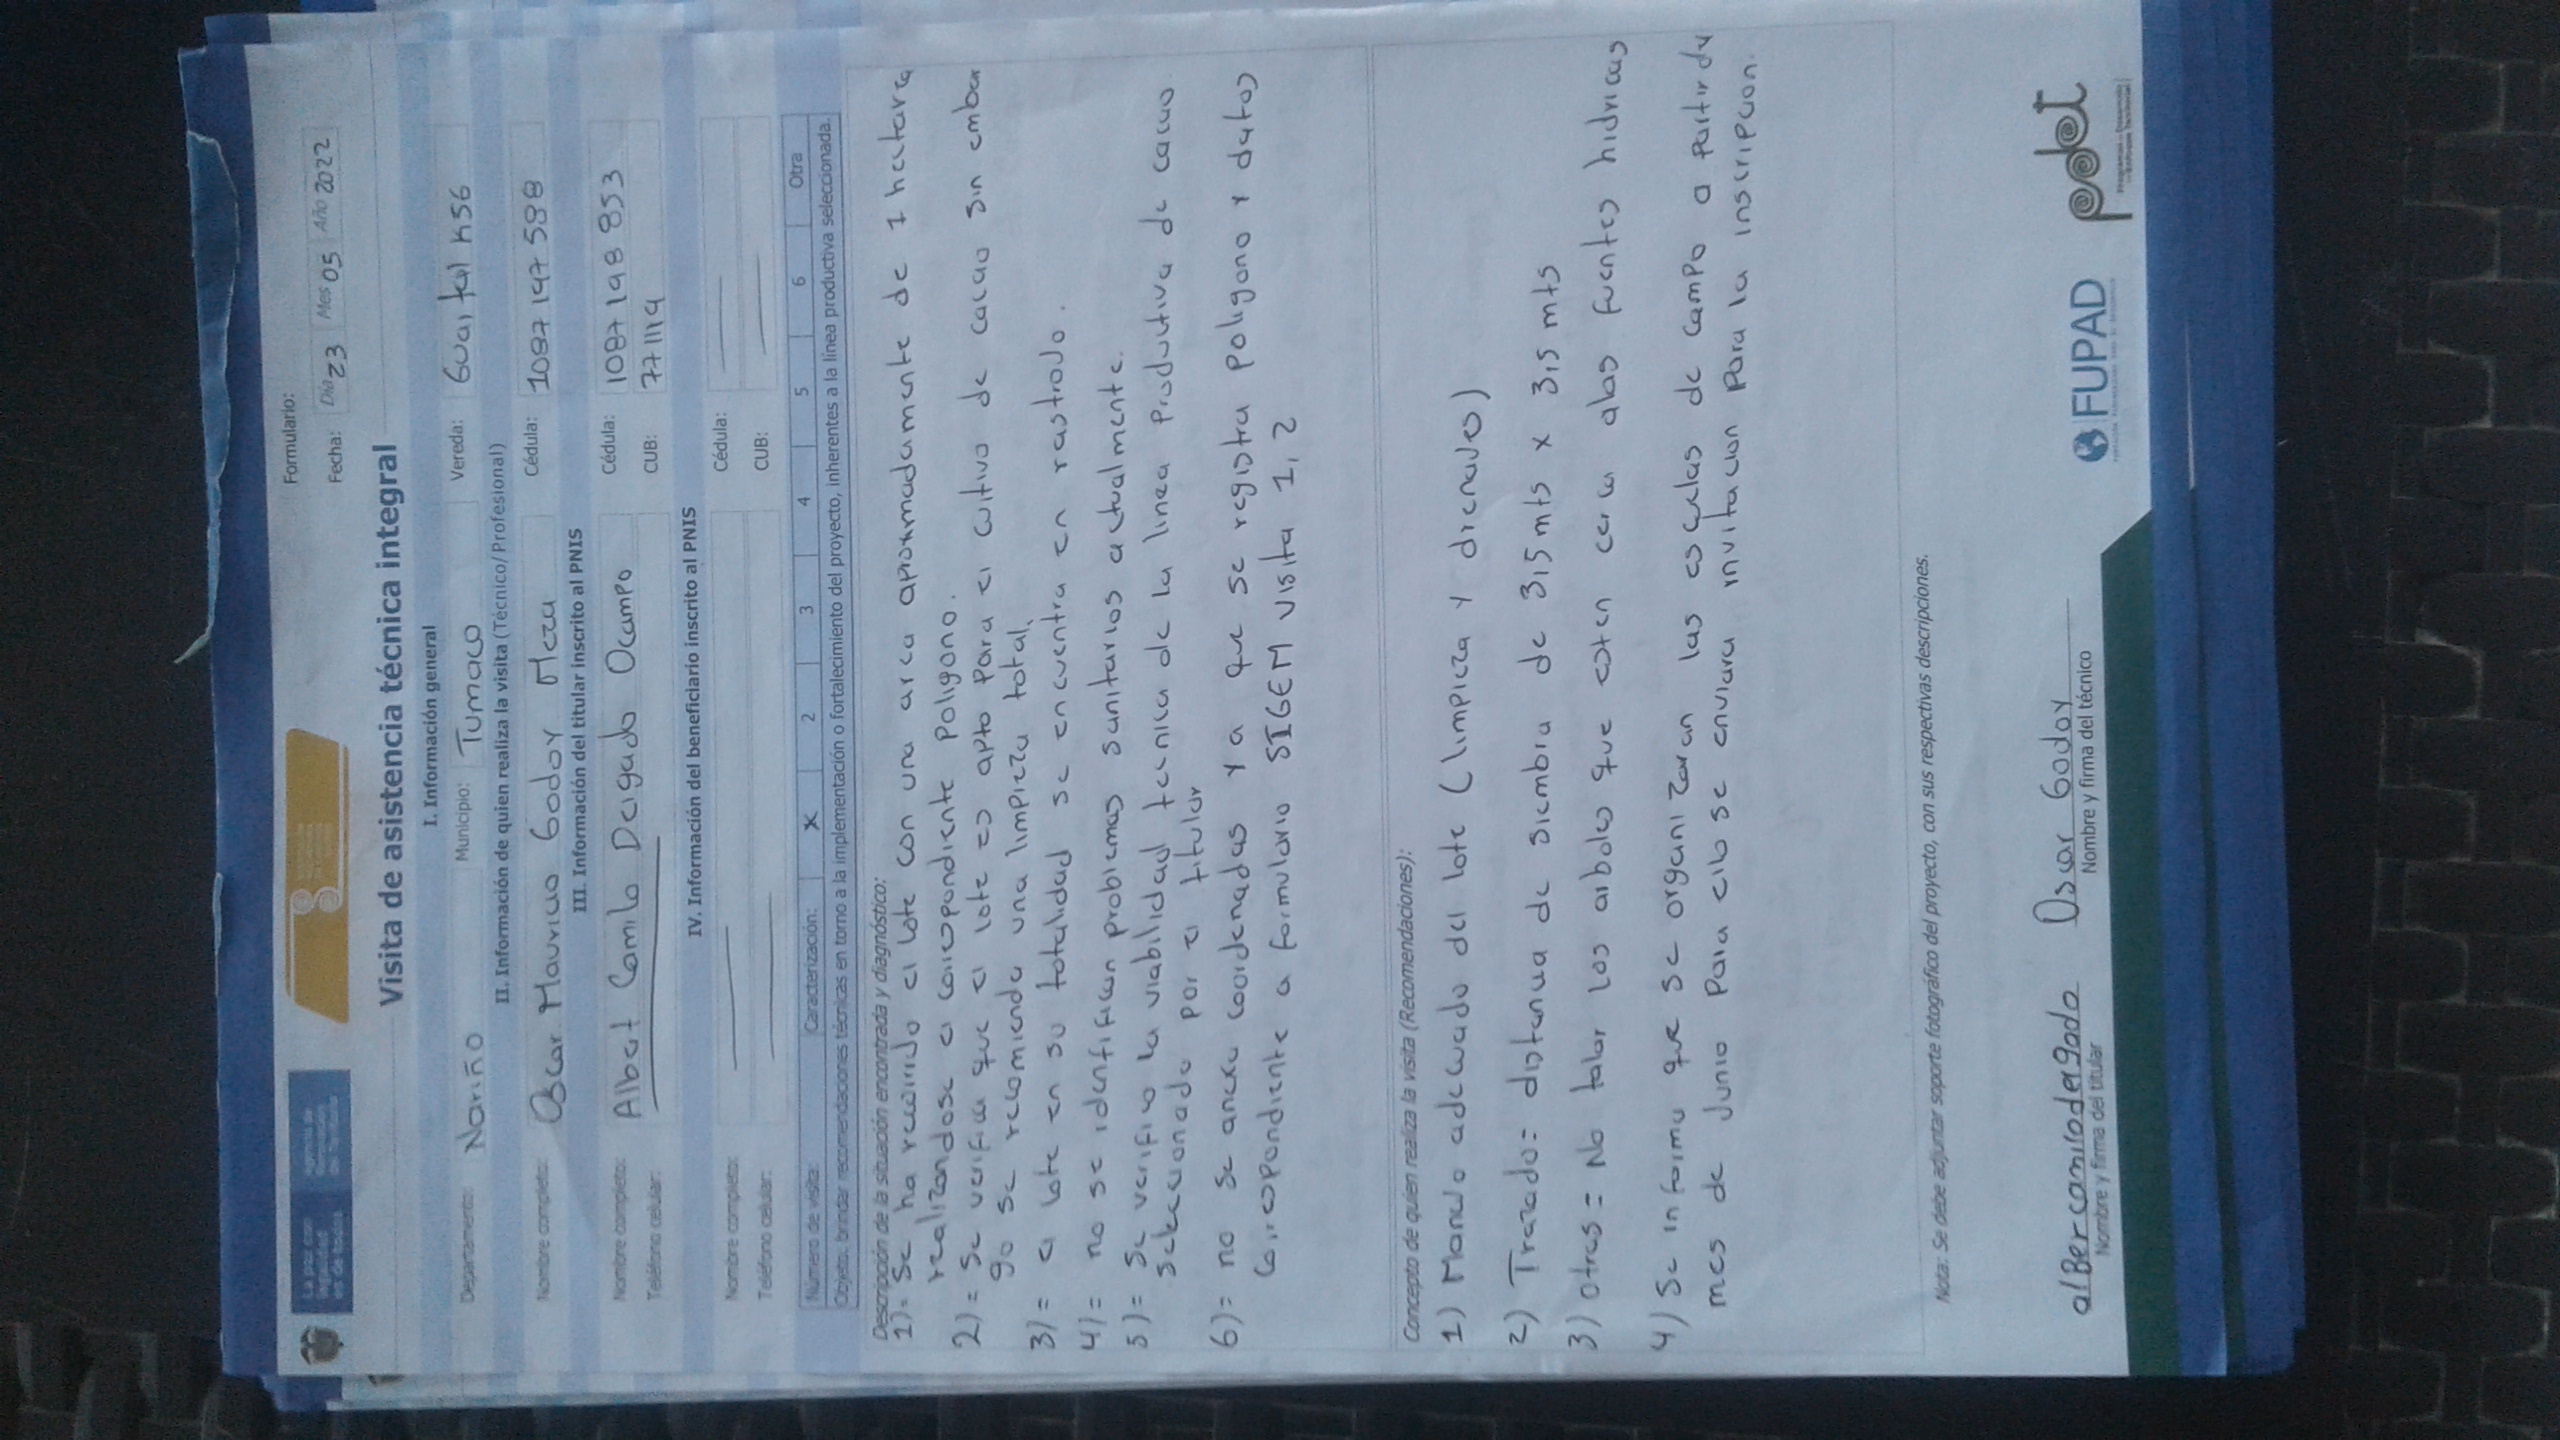 La paz con legalidad es de todos
Formulario:
Fecha: Día 23 Mes 05 Año 2022
Visita de asistencia técnica integral
I. Información general
Departamento: Nariño Municipio: Tumaco Vereda: Guaital K56
II. Información de quien realiza la visita (Técnico/Profesional)
Nombre completo: Oscar Mauricio Godoy Meza Cédula: 1087 197 588
III. Información del titular inscrito al PNIS
Nombre completo: Albert Camilo Delgado Ocampo Cédula: 1087 198 853
Teléfono celular: CUB: 771114
IV. Información del beneficiario inscrito al PNIS
Nombre completo: Cédula:
Teléfono celular: CUB:
Número de visita: Caracterización: X 2 3 4 5 6 Otra
Objeto: brindar recomendaciones técnicas en torno a la implementación o fortalecimiento del proyecto, inherentes a la línea productiva seleccionada.
Descripción de la situación encontrada y diagnóstico:
1)= Se ha recorrido el lote con una area aproximadamente de 1 hectarea
realizandose el correspondiente Poligono.
2)= Se verifica que el lote es apto Para el cultivo de cacao sin embar
go se recomienda una limpieza total.
3)= el lote en su totalidad se encuentra en rastrojo.
4)= no se identifican problemas sanitarios actualmente.
5)= Se verifico la viabilidad tecnica de la linea Productiva de cacao
seleccionado por el titular
6)= no se anexa coordenadas ya que se registra Poligono y datos
Correspondiente a formulario SIGEM visita 1,2
Concepto de quien realiza la visita (Recomendaciones):
1) Manejo adecuado del lote (limpieza y drenajes)
2) Trazado= distancia de siembra de 3,5 mts x 3,5 mts
3) otras= No talar los arboles que esten cerca alas fuentes hidricas
4) Se informa que se organizaran las escuelas de campo a partir du
mes de Junio Para ello se enviara invitacion Para la inscripcion.
Nota: Se debe adjuntar soporte fotográfico del proyecto, con sus respectivas descripciones.
alBercamilodelgado Oscar Godoy
Nombre y firma del titular Nombre y firma del técnico
FUPAD pdet